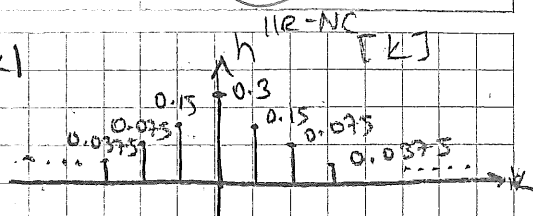 h IIR-NC [k]
0.3
0.15 0.15
0.075 0.075
0.0375 0.0375
k